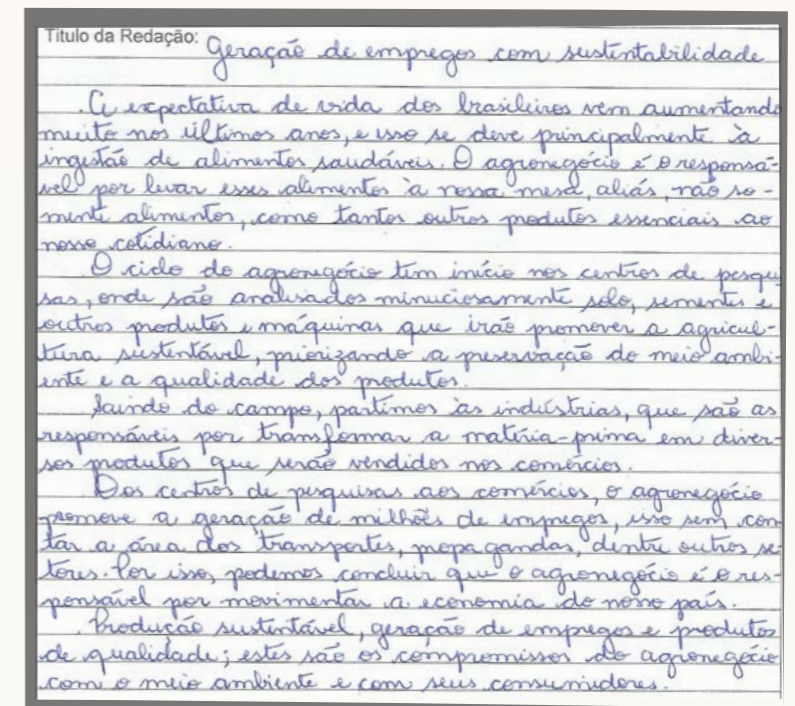 Título da Redação: Geração de empregos com sustentabilidade
A expectativa de vida dos brasileiros vem aumentando
muito nos últimos anos, e isso se deve principalmente à
ingestão de alimentos saudáveis. O agronegócio é o responsá-
vel por levar esses alimentos à nossa mesa, aliás, não so-
mente alimentos, como tantos outros produtos essenciais ao
nosso cotidiano.
O ciclo do agronegócio tem início nos centros de pesqui
sas, onde são analisados minuciosamente solo, sementes e
outros produtos e máquinas que irão promover a agricul-
tura sustentável, priorizando a preservação do meio ambi-
ente e a qualidade dos produtos.
Saindo do campo, partimos às indústrias, que são as
responsáveis por transformar a matéria-prima em diver-
sos produtos que serão vendidos nos comércios.
Dos centros de pesquisas aos comércios, o agronegócio
promove a geração de milhões de empregos, isso sem con
tar a área dos transportes, propagandas, dentre outros se-
tores. Por isso, podemos concluir que o agronegócio é o res-
ponsável por movimentar a economia do nosso país.
Produção sustentável, geração de empregos e produtos
de qualidade; estes são os compromissos do agronegócio
com o meio ambiente e com seus consumidores.